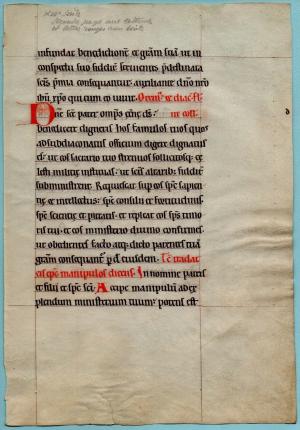 infundat benedictionē et grām suā ut in
conspectu suo fidelit̄ seruientes p̄destinata
sc̄is p̄mia consequantur. auxiliante dn̄o nr̄o
Dn̄e sc̄e pater omps et̄ne ds̄
benedicere digneris hos famulos tuos quos
ad subdiaconatus officium eligere dignatus
es. ut eos sacrario tuo strenuos sollicitosq; ce
lestis milicie instituas. ut sc̄is altarib; fidelit̄
subministrent. Requiescat sup eos sps̄ sapien
tie et intellectus. sps̄ consilii et fortitudinis.
sps̄ scientie et pietatis. et repleas eos sp̄u timo
ris tui. et eos ministerio diuino confirmes.
ut obedientes facto atq; dicto parentes tuā
grām consequant̄.
eis ep̄s manipulos dicens. In nomine patris
et filii et sp̄c sc̄i. Accipe manipulū adim
plendum ministerium tuum. potens est